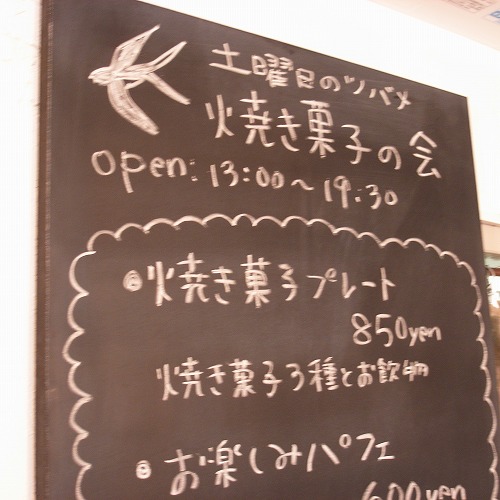 土曜日のツバメ
焼き菓子の会
open: 13:00～19:30
焼き菓子プレート
850yen
焼き菓子3種とお飲物
お楽しみパフェ
600yen